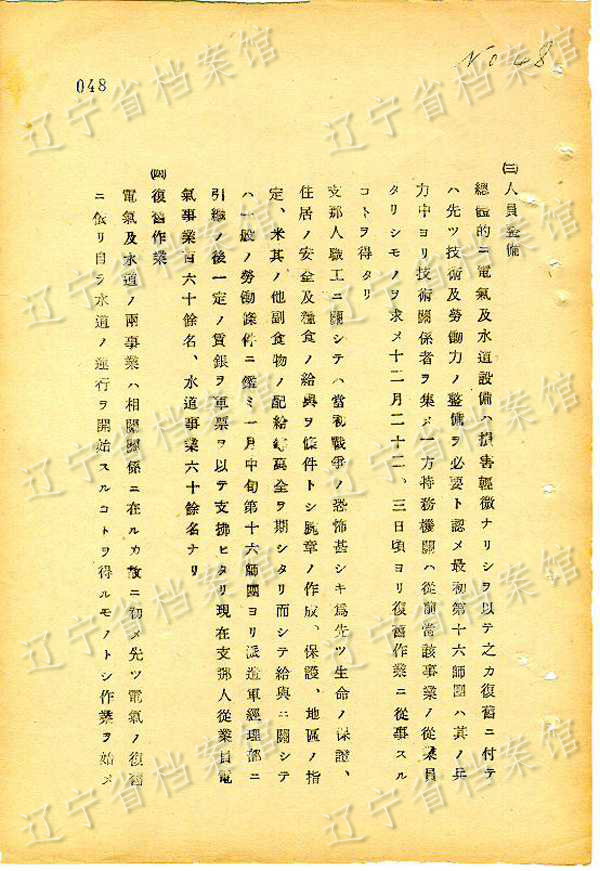 No 48
048
㈢人員整備
總體的ニ電氣及水道設備ハ損害輕微ナリシヲ以テ之カ復舊ニ付テ
ハ先ツ技術及勞働力ノ整備ヲ必要ト認メ最初第十六師團ハ其ノ兵
力中ヨリ技術關係者ヲ集メ一方特務機關ハ從前當該事業ノ從業員
タリシモノヲ求メ十二月二十二、三日頃ヨリ復舊作業ニ從事スル
コトヲ得タリ
支那人職工ニ關シテハ當初戰爭ノ恐怖甚シキ爲先ツ生命ノ保證、
住居ノ安全及糧食ノ給與ヲ條件トシ腕章ノ作成、保護、地區ノ指
定、米其ノ他副食物ノ配給等萬全ヲ期シタリ而シテ給與ニ關シテ
ハ一般ノ勞働條件ニ鑑ミ一月中旬第十六師團ヨリ派遣軍經理部ニ
引繼ノ後一定ノ賃銀ヲ軍票ヲ以テ支拂ヒタリ現在支那人從業員電
氣事業百六十餘名、水道事業六十餘名ナリ
㈣復舊作業
電氣及水道ノ兩事業ハ相關關係ニ在ルカ故ニ初メ先ツ電氣ノ復舊
ニ依リ自ラ水道ノ運行ヲ開始スルコトヲ得ルモノトシ作業ヲ始メ
辽宁省档案馆
辽宁省档案馆
辽宁省档案馆
辽宁省档案馆
辽宁省档案馆
辽宁省档案馆
辽宁省档案馆
辽宁省档案馆
辽宁省档案馆
辽宁省档案馆